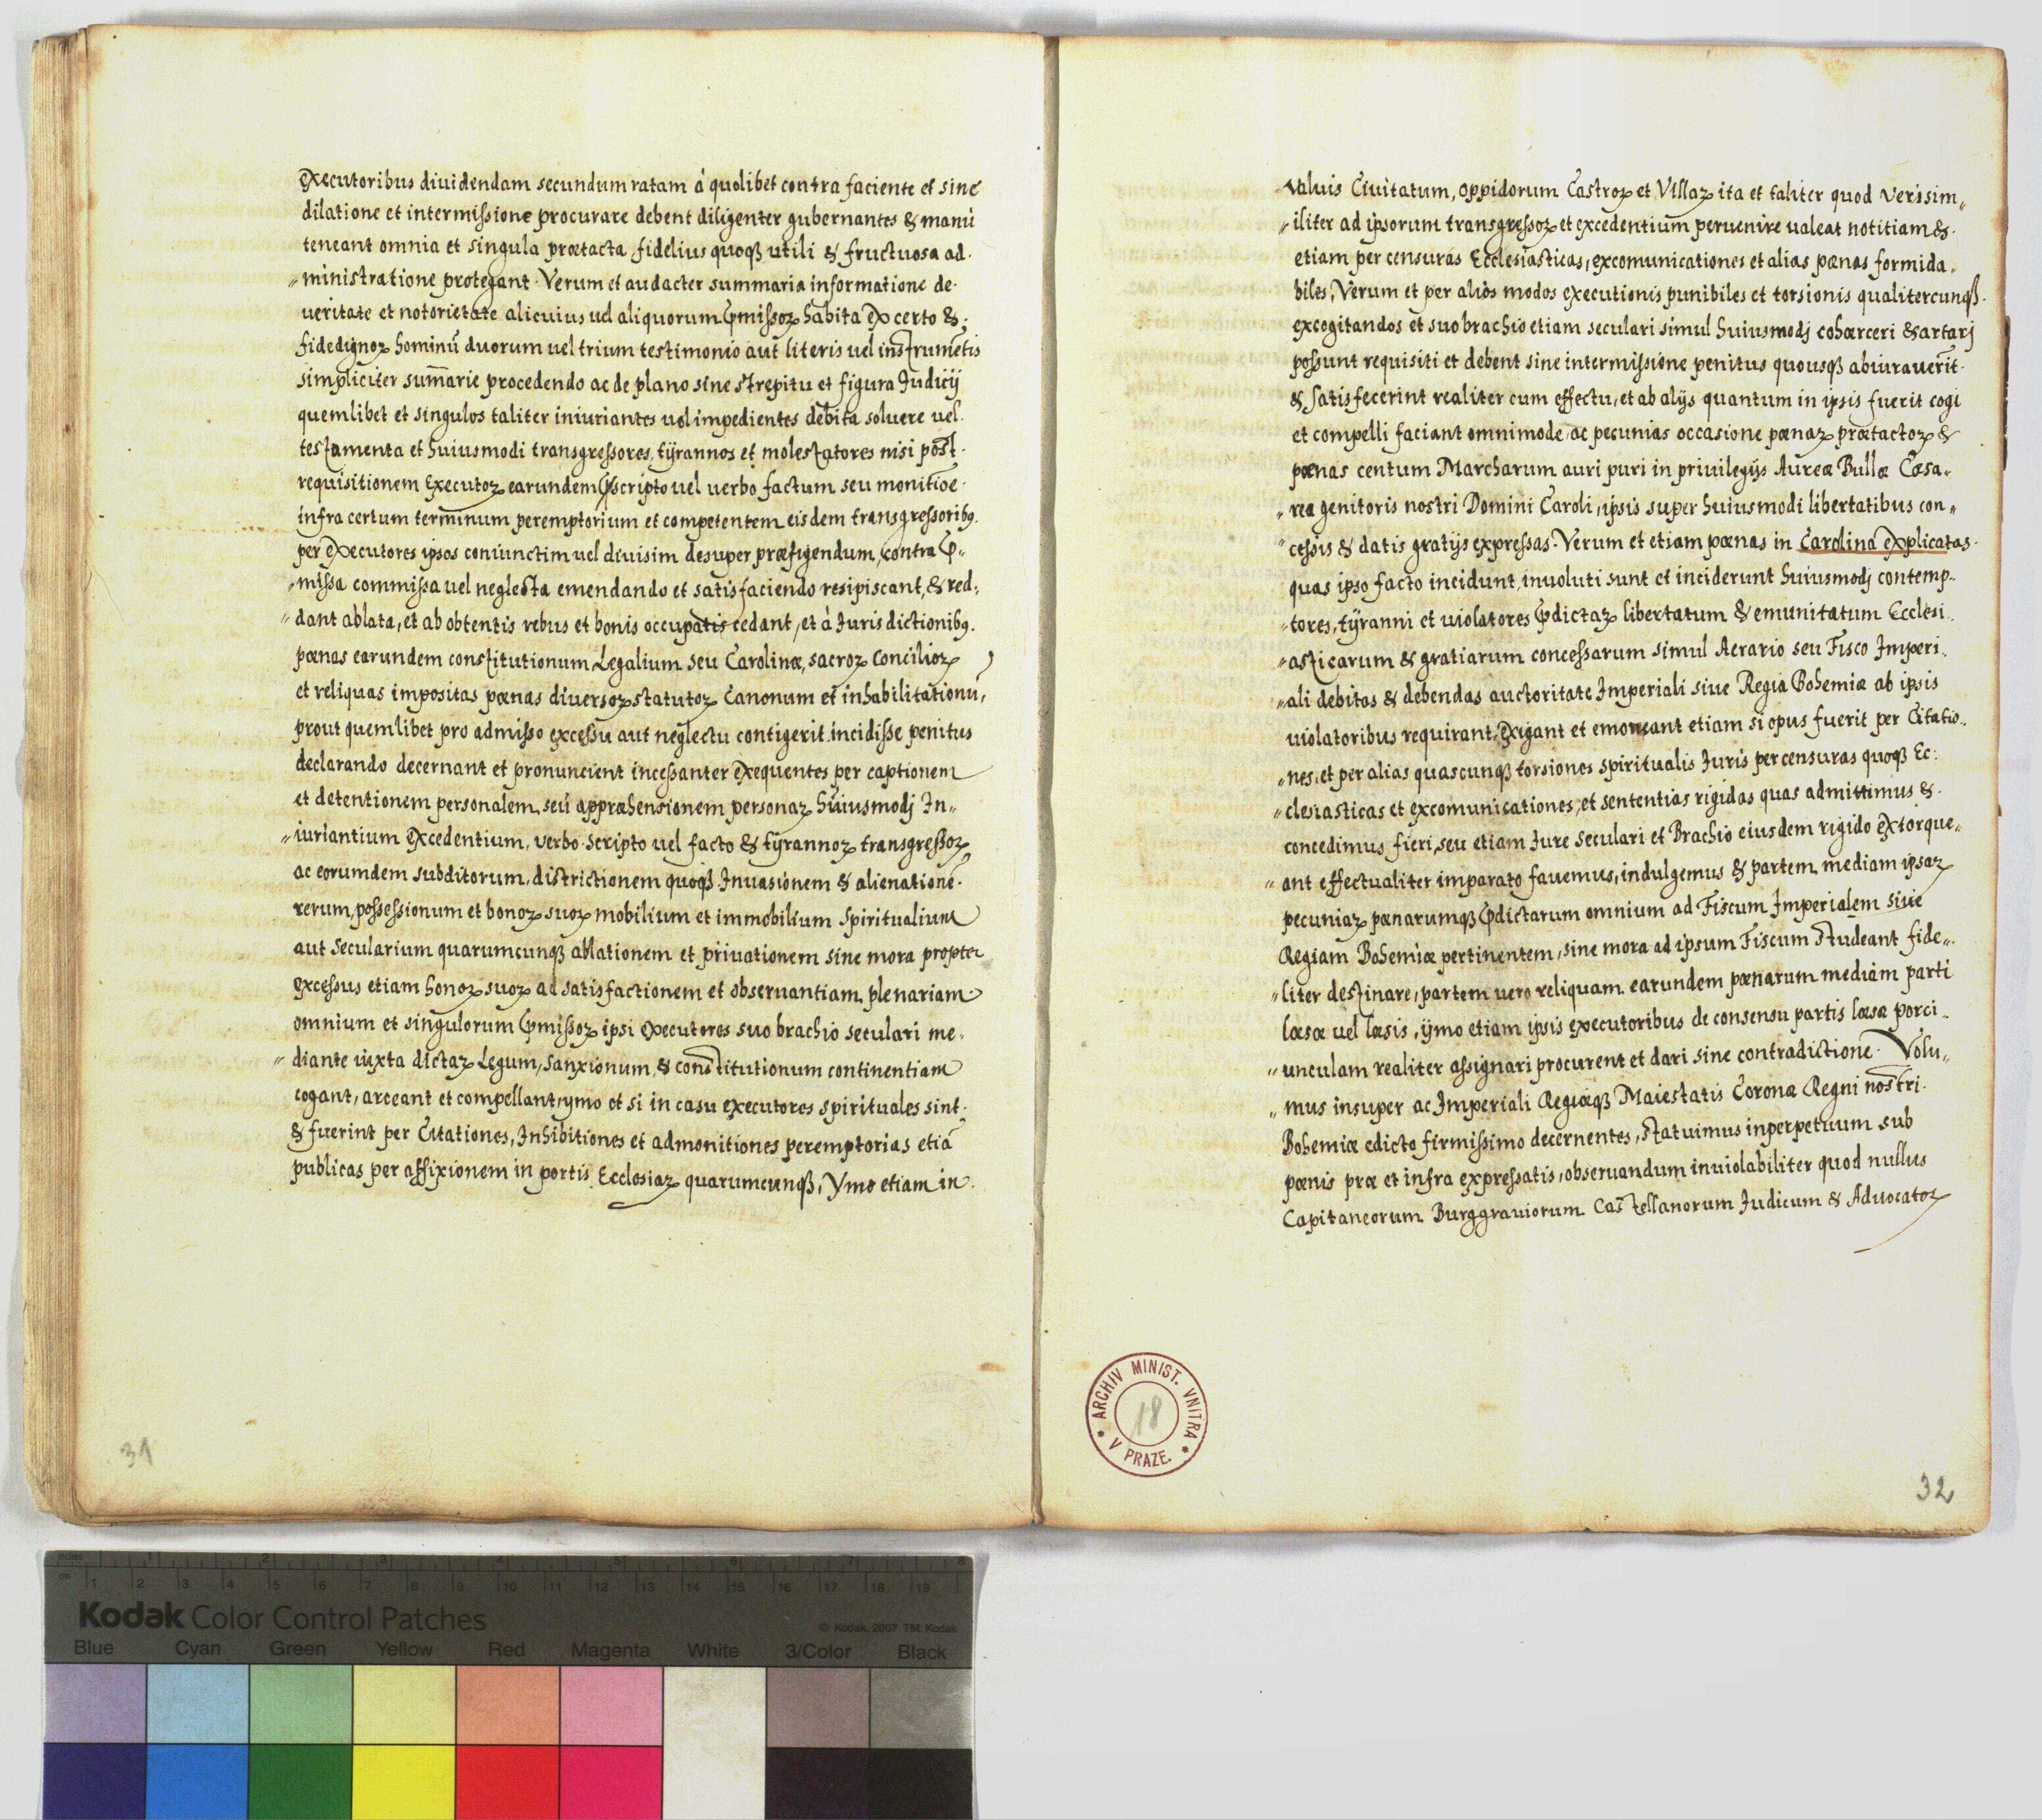 Executoribus diuidendam secundum ratam à quolibet contra faciente et sine
dilatione et intermissione procurare debent diligenter gubernantes & manu
teneant omnia et singula prætacta, fidelius quoqꝫ utili & fructuosa ad.
„ministratione protegant. Verum et audacter summaria informatione de.
ueritate et notorietate alicuius uel aliquorum p̄missoꝝ habita ex certo &;
fidedignoꝝ hominū duorum uel trium testimonio aut literis uel instrumētis
simpliciter sum̄arie procedendo ac de plano sine strepitu et figura Judicij
quemlibet et singulos taliter iniuriantes uel impedientes debita soluere uel.
testamenta et huiusmodi transgressores, tÿrannos et molestatores nisi post.
requisitionem Executoꝝ earundem scripto uel uerbo factum seu monitiōe.
infra certum terminum peremptorium et competentem eisdem transgressoribꝰ.
per Executores ipsos coniunctim uel diuisim desuper præfigendum, contra p̄„
„missa commissa uel neglecta emendando et satisfaciendo resipiscant, & red.
„dant ablata, et ab obtentis rebus et bonis occupatis cedant, et à Jurisdictionibꝰ.
pœnas earundem constitutionum Legalium seu Carolinæ, sacroꝝ Concilioꝝ
et reliquas impositas pœnas diuersoꝝ statutoꝝ Canonum et inhabilitationū,
prout quemlibet pro admisso excessu aut neglectu contigerit, incidisse penitus
declarando decernant et pronuncient incessanter Exequentes per captionem
et detentionem personalem, seu appræhensionem personaꝝ huiusmodj In„
„iuriantium Excedentium, verbo scripto uel facto & tÿrannoꝝ transgressoꝝ
ac eorumdem subditorum, districtionem quoqꝫ Inuasionem & alienationē.
rerum, possessionum et bonoꝝ suoꝝ mobilium et immobilium Spiritualium
aut Secularium quarumcunqꝫ ablationem et priuationem sine mora propter
excessus etiam honoꝝ suoꝝ ad satisfactionem et obseruantiam plenariam
omnium et singulorum p̄missoꝝ ipsi executores suo brachio seculari me.
„diante iuxta dictaꝝ Legum, sanxionum, & constitutionum continentiam
cogant, arceant et compellant, ymo et si in casu executores spirituales sint.
& fuerint per Citationes, Inhibitiones et admonitiones peremptorias etiā
publicas per affixionem in portis Ecclesiaꝝ quarumcunqꝫ, Ymo etiam in.
31
valuis Ciuitatum, oppidorum Castroꝝ et Villaꝝ ita et taliter quod verisim„
„iliter ad ipsorum transgressoꝝ et excedentium peruenire ualeat notitiam &.
etiam per censuras Ecclesiasticas, excomunicationes et alias pœnas formida.
biles, Verum et per alios modos executionis punibiles et torsionis qualitercunqꝫ.
excogitandos et suo brachio etiam seculari simul huiusmodj cohærceri & artarj
possunt requisiti et debent sine intermissione penitus quousqꝫ abiurauerit.
& satisfecerint realiter cum effectu, et ab alijs quantum in ipsis fuerit cogi
et compelli faciant omnimode, ac pecunias occasione pœnaꝝ prætactoꝝ &
pœnas centum Marcharum auri puri in priuilegijs Aureæ Bullæ Cæsa„
„rea genitoris nostri Domini Caroli, ipsis super huiusmodi libertatibus con„
„cessis & datis gratijs expressas. Verum et etiam pœnas in Carolina explicatas.
quas ipso facto incidunt, inuoluti sunt et inciderunt huiusmodj contemp„
„tores, tÿranni et uiolatores p̄dictaꝝ libertatum & emunitatum Ecclesi„
„asticarum & gratiarum concessarum simul Aerario seu Fisco Imperi„
„ali debitas & debendas auctoritate Imperiali siue Regia Bohemiæ ab ipsis
uiolatoribus requirant, exigant et emoneant etiam si opus fuerit per Citatio„
„nes, et per alias quascunqꝫ torsiones spiritualis Juris per censuras quoqꝫ Ec:
„clesiasticas et excomunicationes, et sententias rigidas quas admittimus &.
concedimus fieri, seu etiam Jure seculari et Brachio eiusdem rigido extorque„
„ant effectualiter imparato fauemus, indulgemus & partem mediam ipsaꝝ
pecuniaꝝ pœnarumqꝫ p̄dictarum omnium ad Fiscum Imperialem siue
Regiam Bohemiæ pertinentem, sine mora ad ipsum Fiscum studeant fide„
„liter destinare, partem uero reliquam earundem pœnarum mediam parti
læsæ uel læsis, ÿmo etiam ipsis executoribus de consensu partis læsæ porci„
„unculam realiter assignari procurent et dari sine contradictione. Volu„
„mus insuper ac Imperiali Regiæqꝫ Maiestatis Coronæ Regni nostri.
Bohemiæ edicto firmissimo decernentes, statuimus inperpetuum sub
pœnis præ et infra expressatis, obseruandum inuiolabiliter quod nullus
Capitaneorum Burggrauiorum Castellanorum Judicum & Aduocatoꝝ
ARCHIV MINIST. VNITRA
18
* V PRAZE. *
32
inches 1 2 3 4 5 6 7 8
cm 1 2 3 4 5 6 7 8 9 10 11 12 13 14 15 16 17 18 19
Kodak Color Control Patches
© Kodak, 2007 TM: Kodak
Blue Cyan Green Yellow Red Magenta White 3/Color Black